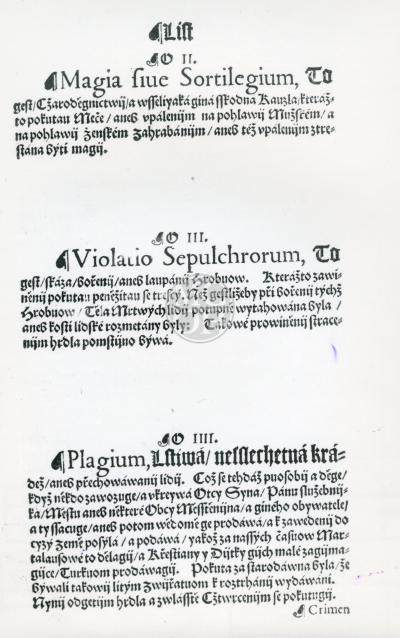 ¶List
O II.
¶Magia siue Sortilegium, To
gest/Cžaroděgnictwij/a wsselijaká giná sskodná Kauzla/kteráž-
to pokutau Meče/aneb vpálenijm na pohlawij Mužském/a
na pohlawij ženském zahrabánijm/aneb též vpálenijm ztre-
stána býti magij.
O III.
¶Violatio Sepulchrorum, To
gest/skáza/bořenij/aneb laupánij Hrobuow. Kterážto zawi-
něnij pokutau peněžitau se trescý. Než gestližeby při bořenij týchž
Hrobuow/Těla Mrtwých lidij potupně wytahowána byla/
aneb kosti lidské rozmetány byly: Takowé prowiněnij strace-
nijm hrdla pomstijno býwá.
O IIII.
¶Plagium, Lstiwá/nesslechetná krá-
dež/aneb přechowáwanij lidij. Což se tehdáž puosobij a děge/
když někdo zawozuge/a vkreywá Otcy Syna/Pánu služebnij-
ka/Městu aneb některé Obcy Messtěnijna/a giného obywatele/
a ty ssacuge/aneb potom wědomě ge prodáwá/a k zawedenij do
cyzý Země posýlá/a podáwá/yakož za nassých časuow Mar-
talausowé to dělagij/a Křestiany y Dijtky gijch malé zagijma-
gijce/Turkuom prodáwagij. Pokuta za starodáwna byla/že
býwali takowij litým Zwijřatuom k roztrhánij wydáwáni.
Nynij odgetijm hrdla a zwlásstě Cžtwrcenijm se pokutugij.
¶Crimen